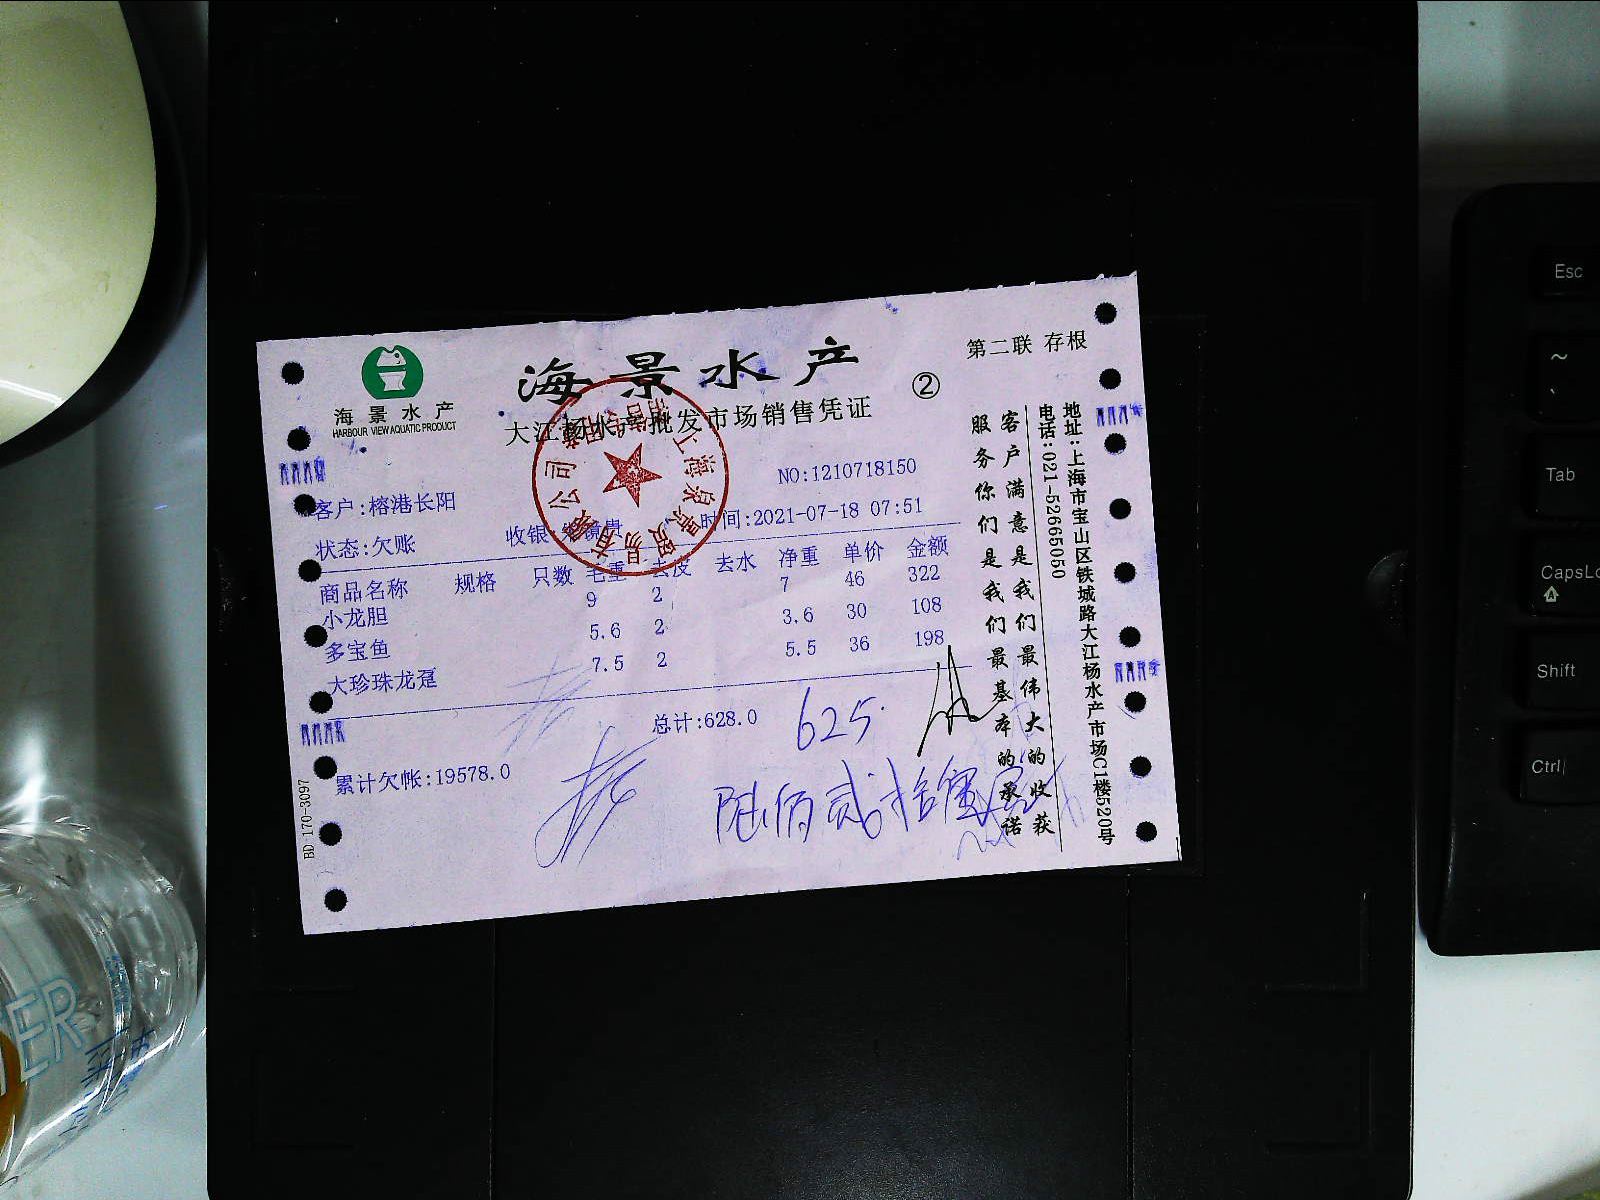 海景水产
HARBOUR VIEW AQUATIC PRODUCT
海景水产
大江杨水产批发市场销售凭证
②
第二联 存根
NO:1210718150
客户:榕港长阳
状态:欠账
收银:
时间:2021-07-18 07:51
商品名称 规格 只数 毛重 去皮 去水 净重 单价 金额
小龙胆 9 2 7 46 322
多宝鱼 5.6 2 3.6 30 108
大珍珠龙趸 7.5 2 5.5 36 198
总计:628.0
625.
累计欠帐:19578.0
陆佰贰拾
BD 170-3097
地址:上海市宝山区铁城路大江杨水产市场C1楼520号
电话:021-52665050
客户满意是我们最伟大的收获
服务你们是我们最基本的承诺
上海泉景贸易有限公司
Esc
~
`
Tab
CapsLo
Shift
Ctrl
TER